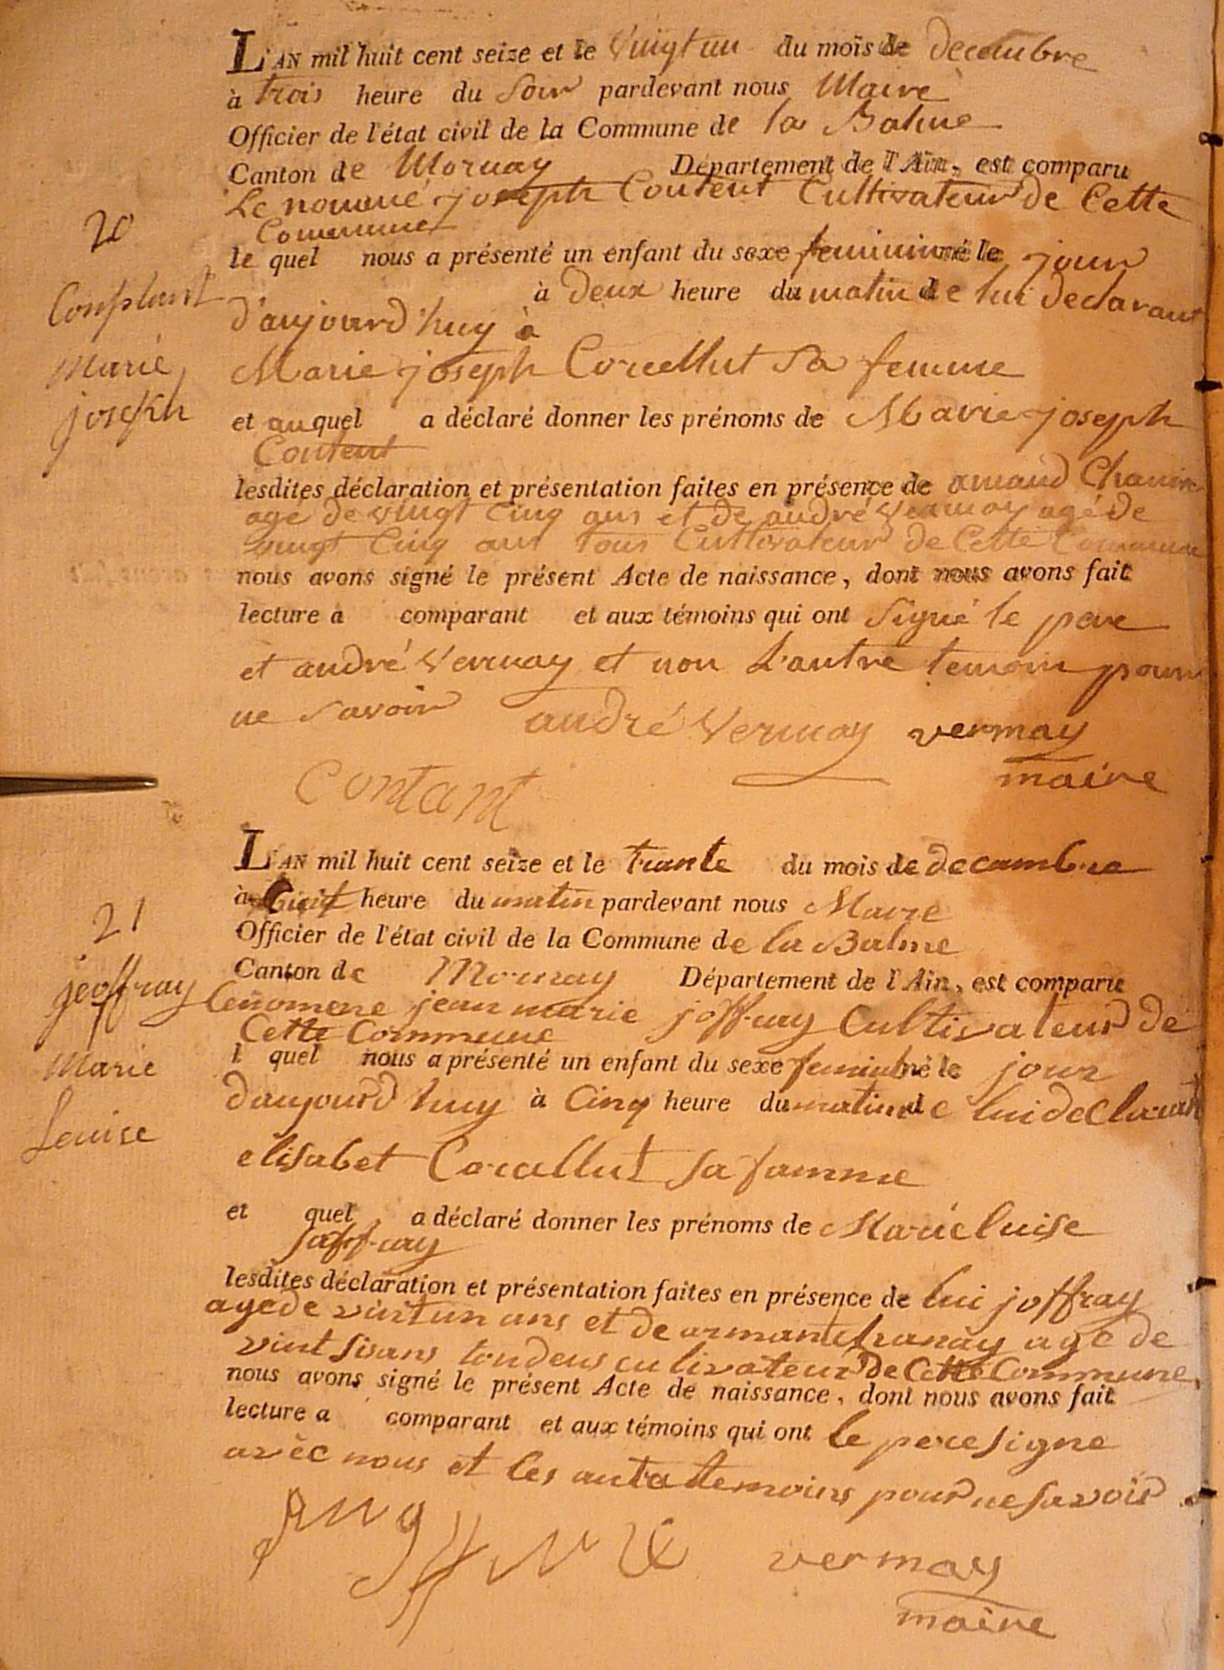 L'AN mil huit cent seize et le vingt un du mois de decembre
à trois heure du soir pardevant nous Maire
Officier de l'état civil de la Commune de la Balme
Canton de Mornay Département de l'Ain, est comparu
Le nommé joseph Content Cultivateur de Cette
Commune
20
le quel nous a présenté un enfant du sexe feminin né le jour
Marie
joseph
d'aujourd'huy à à deux heure du matin de lui declarant
Marie joseph Corcellut Sa femme
et auquel a déclaré donner les prénoms de Marie joseph
Content
lesdites déclaration et présentation faites en présence de amand
age de vingt Cinq ans et de andré vernay agé de
vingt Cinq ans tous Cultivateur de Cette Commune
nous avons signé le présent Acte de naissance, dont nous avons fait
lecture a comparant et aux témoins qui ont signé le pere
et andré Vernay et non L'autre temoin pour
ne Savoir
andré Vernay vernay
maire
Contant
L'AN mil huit cent seize et le trante du mois de decambre
à huit heure du matin pardevant nous Maire
Officier de l'état civil de la Commune de la Balme
21
jeoffray
Marie
Louise
Canton de Mornay Département de l'Ain, est comparu
lenomene jean marie joffray Cultivateur de
Cette Commune
l quel nous a présenté un enfant du sexe feminin né le jour
daujourd huy à Cinq heure du matin de lui declarant
elisabet Corcallut sa famme
et quel a déclaré donner les prénoms de Marie luise
joffray
lesdites déclaration et présentation faites en présence de lui joffray
agede vint un ans et de armant chanay age de
vint sisans tondeus culivateur de Cette Commune
nous avons signé le présent Acte de naissance, dont nous avons fait
lecture a comparant et aux témoins qui ont le pere signe
avec nous et les autre temoins pour ne savoir
vernay
maire